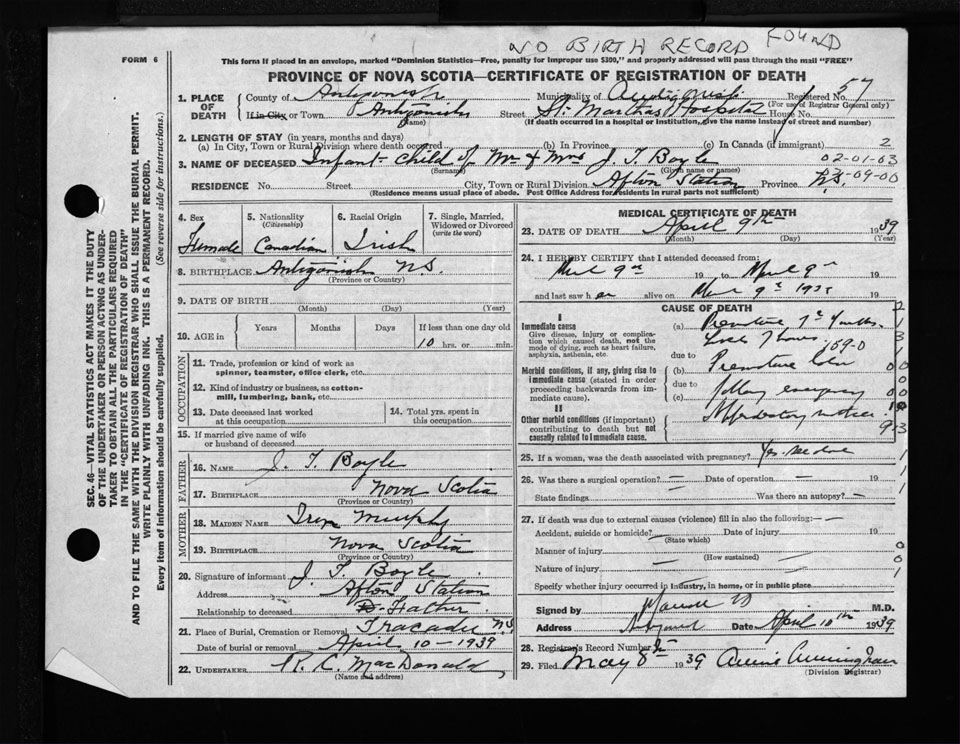 NO BIRTH RECORD FOUND
FORM 6
This form if placed in an envelope, marked "Dominion Statistics—Free, penalty for improper use $300," and properly addressed will pass through the mail "FREE"
PROVINCE OF NOVA SCOTIA—CERTIFICATE OF REGISTRATION OF DEATH
SEC. 46—VITAL STATISTICS ACT MAKES IT THE DUTY
OF THE UNDERTAKER OR PERSON ACTING AS UNDER-
TAKER TO OBTAIN ALL THE PARTICULARS REQUIRED
IN THE "CERTIFICATE OF REGISTRATION OF DEATH"
AND TO FILE THE SAME WITH THE DIVISION REGISTRAR WHO SHALL ISSUE THE BURIAL PERMIT.
WRITE PLAINLY WITH UNFADING INK. THIS IS A PERMANENT RECORD.
Every item of information should be carefully supplied. (See reverse side for instructions.)
1. PLACE OF DEATH County of Antigonish Municipality of Antigonish Registered No. 57
(For use of Registrar General only)
If in City or Town Antigonish Street St. Marthas Hospital House No.
(Name) (If death occurred in a hospital or institution, give the name instead of street and number)
2. LENGTH OF STAY (in years, months and days)
(a) In City, Town or Rural Division where death occurred (b) In Province (c) In Canada (if immigrant) 2
3. NAME OF DECEASED Infant Child of Mr & Mrs J. T. Boyle 02-01-03
(Surname) (Given name or names)
RESIDENCE No. Street City, Town or Rural Division Afton Station Province N.S. 09-00
(Residence means usual place of abode. Post Office Address for Residents in rural parts not sufficient)
4. Sex Female
5. Nationality (Citizenship) Canadian
6. Racial Origin Irish
7. Single, Married, Widowed or Divorced (write the word)
8. BIRTHPLACE Antigonish N.S.
(Province or Country)
9. DATE OF BIRTH
(Month) (Day) (Year)
10. AGE in Years Months Days If less than one day old
10 hrs. or min.
OCCUPATION
11. Trade, profession or kind of work as spinner, teamster, office clerk, etc.
12. Kind of industry or business, as cotton-mill, lumbering, bank, etc.
13. Date deceased last worked at this occupation
14. Total yrs. spent in this occupation
15. If married give name of wife or husband of deceased
FATHER
16. NAME J. T. Boyle
17. BIRTHPLACE Nova Scotia
(Province or Country)
MOTHER
18. MAIDEN NAME Murphy
19. BIRTHPLACE Nova Scotia
(Province or Country)
20. Signature of informant J. T. Boyle
Address Afton Station
Relationship to deceased Father
21. Place of Burial, Cremation or Removal Tracadie N.S
Date of burial or removal April 10-1939
22. UNDERTAKER MacDonald
(Name and address)
MEDICAL CERTIFICATE OF DEATH
23. DATE OF DEATH April 9th 1939
(Month) (Day) (Year)
24. I HEREBY CERTIFY that I attended deceased from:
19 to 19
and last saw h er alive on 19
CAUSE OF DEATH
I
Immediate cause
Give disease, injury or complication which caused death, not the mode of dying, such as heart failure, asphyxia, asthenia, etc.
(a) Premature 7
159-0
due to
Morbid conditions, if any, giving rise to immediate cause (stated in order proceeding backwards from immediate cause).
(b) Premature
due to
(c)
II
Other morbid conditions (if important) contributing to death but not causally related to immediate cause.
25. If a woman, was the death associated with pregnancy?
26. Was there a surgical operation? — Date of operation — 19
State findings Was there an autopsy? —
27. If death was due to external causes (violence) fill in also the following:—
Accident, suicide or homicide? Date of injury 19
(State which)
Manner of injury
(How sustained)
Nature of injury
Specify whether injury occurred in industry, in home, or in public place
Signed by M.D.
Address Date April 10th 1939
28. Registrar's Record Number
29. Filed May 8th 1939 Cunningham
(Division Registrar)